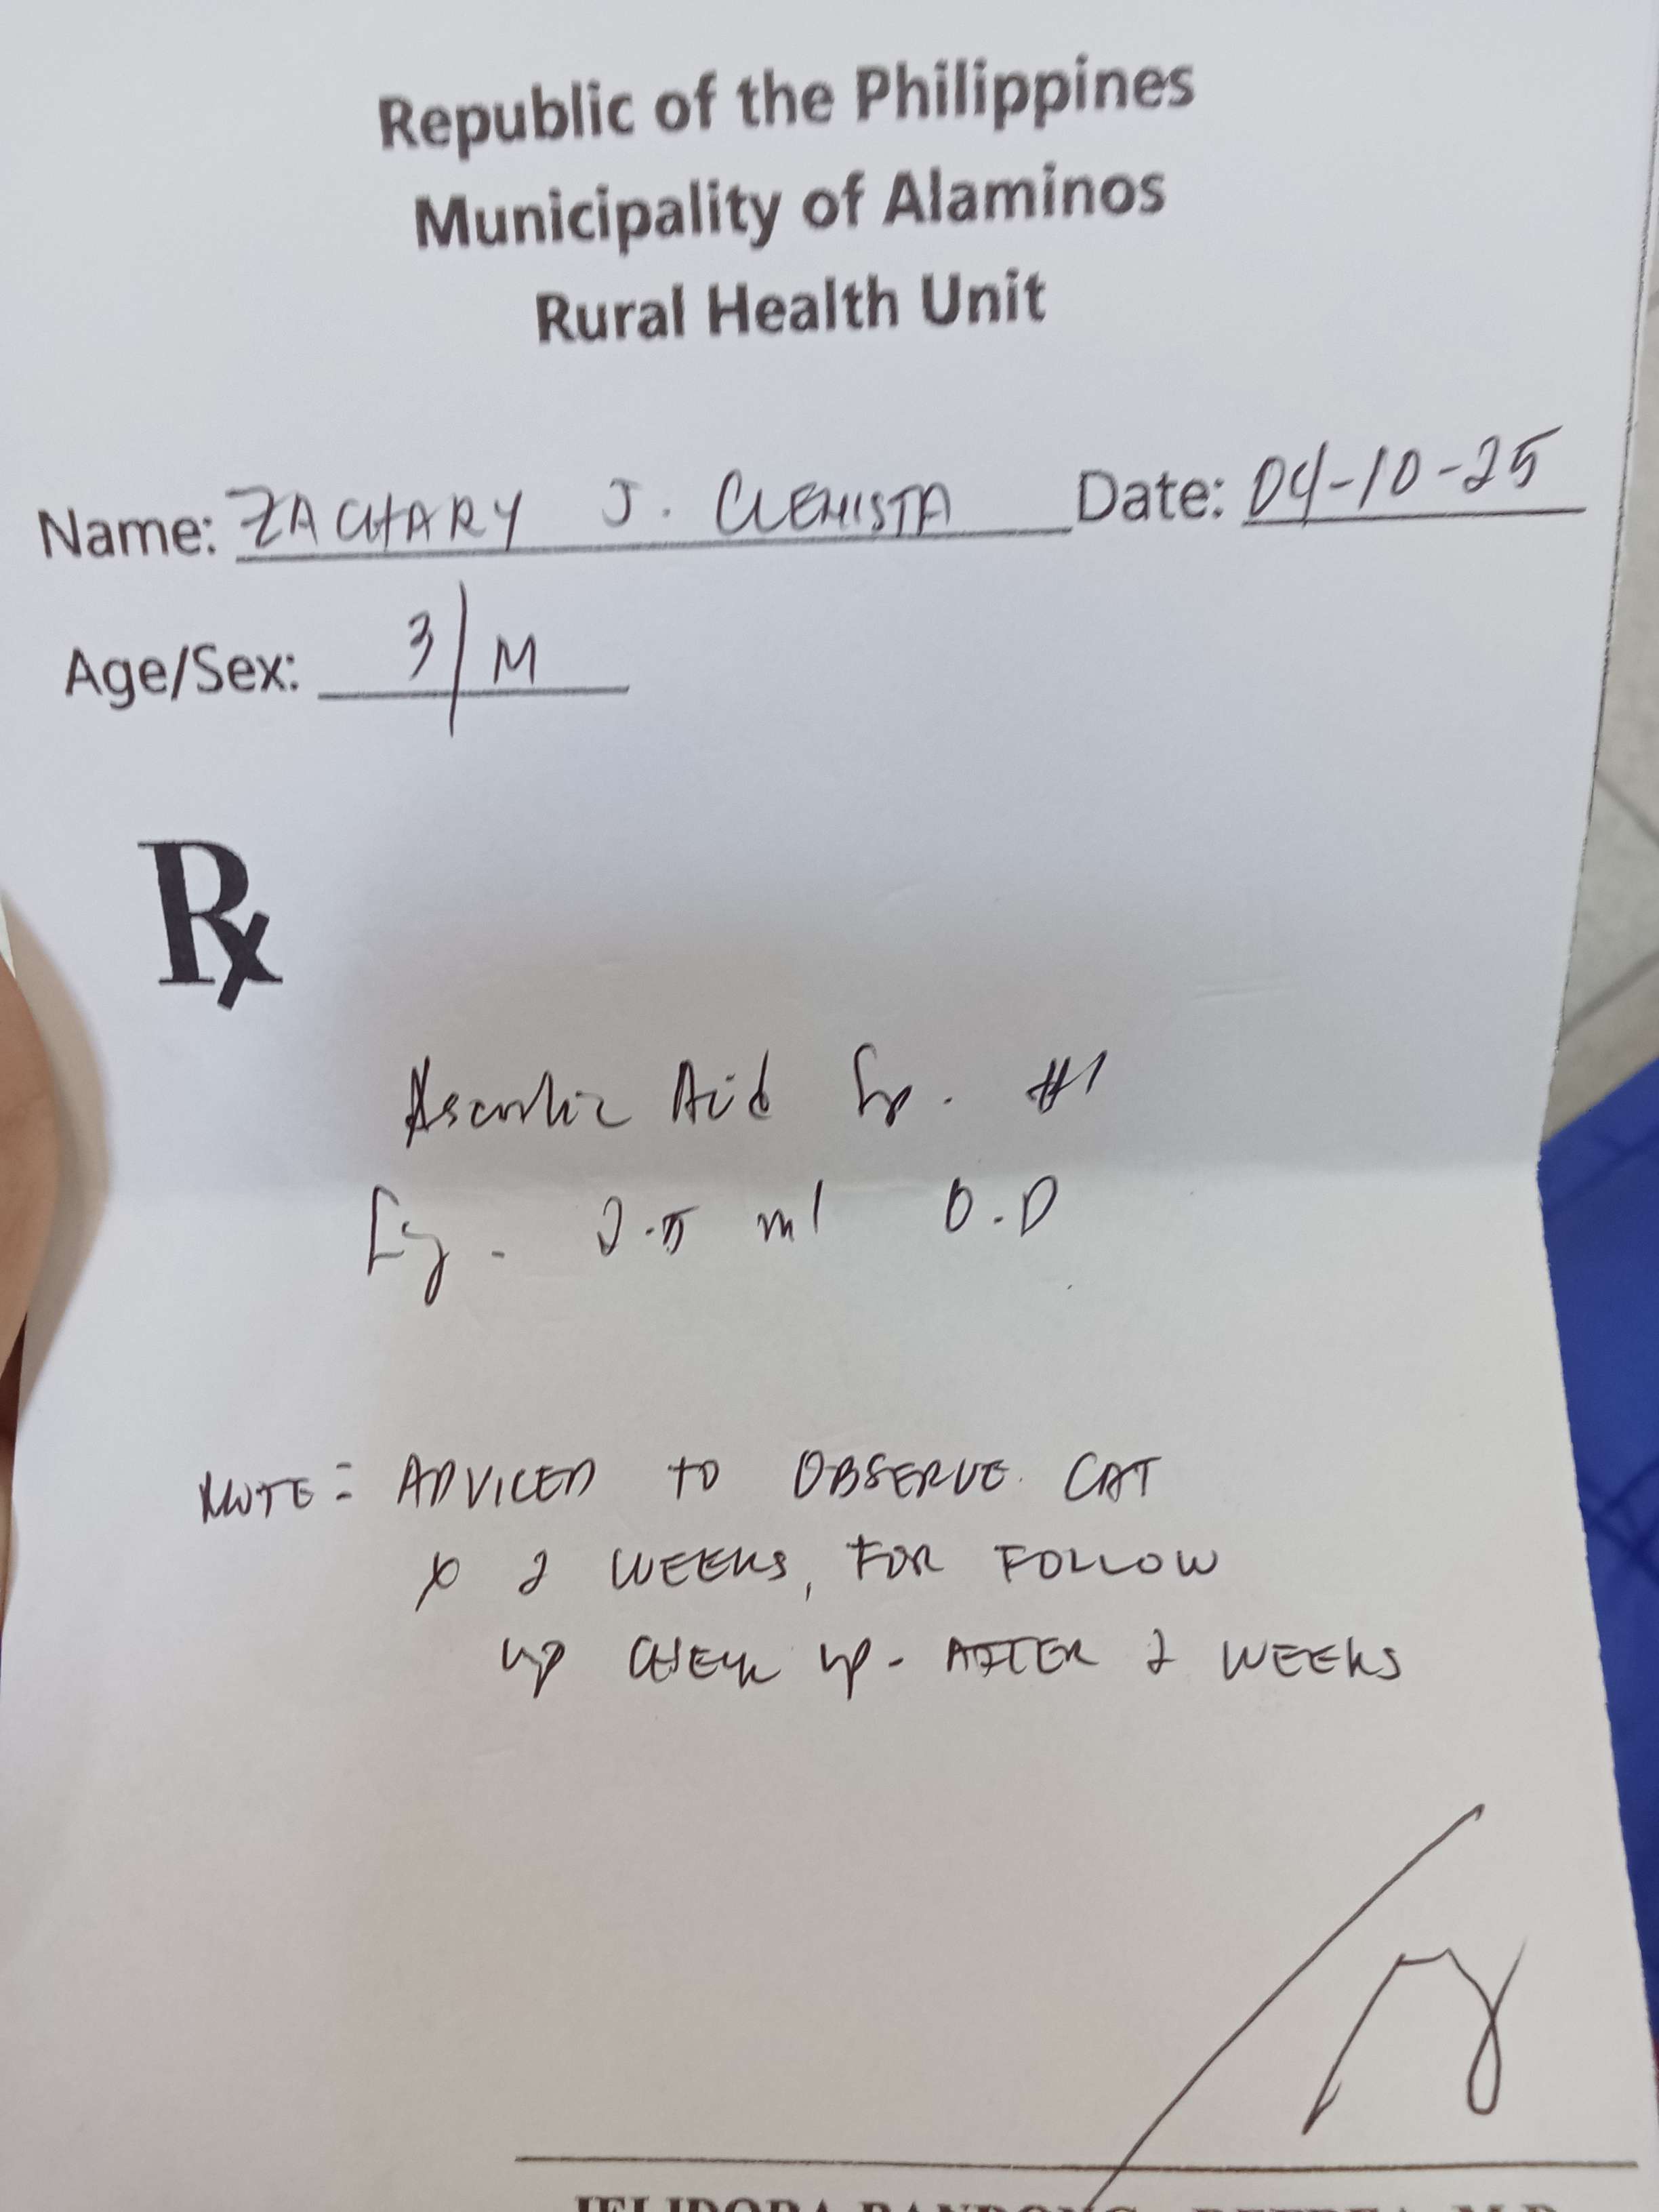 Republic of the Philippines
Municipality of Alaminos
Rural Health Unit
Name: ZACHARY J. CLEMISTA Date: 04-10-25
Age/Sex: 3/M
Rx
Ascorbic Acid Syp. #1
Sig. 2.5 ml O.D
NOTE: ADVICED TO OBSERVE CAT
x 2 WEEKS, FOR FOLLOW
UP CHECK UP- AFTER 2 WEEKS
M.D